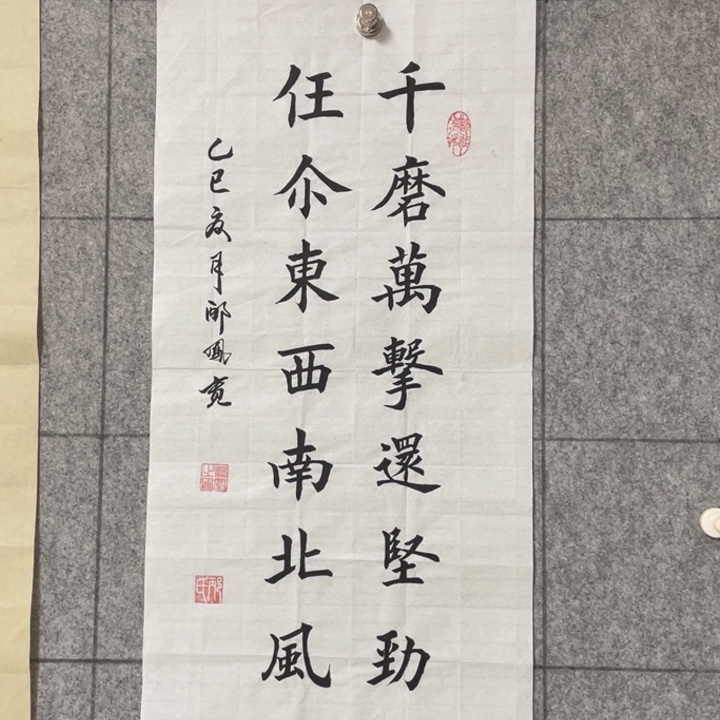 千磨萬擊還堅勁
任尒東西南北風
乙巳夏月鳳寬